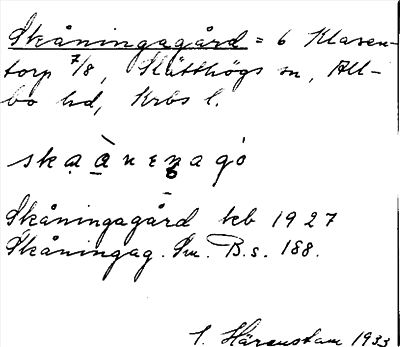 Skåningagård = 6 Klasen-
torp 7/8, Slätthögs sn, All-
bo hd, Krbs l.
skaàneŋagó
Skåningagård tkb 1927
Skåningag. Sm. B.s. 188.
1933